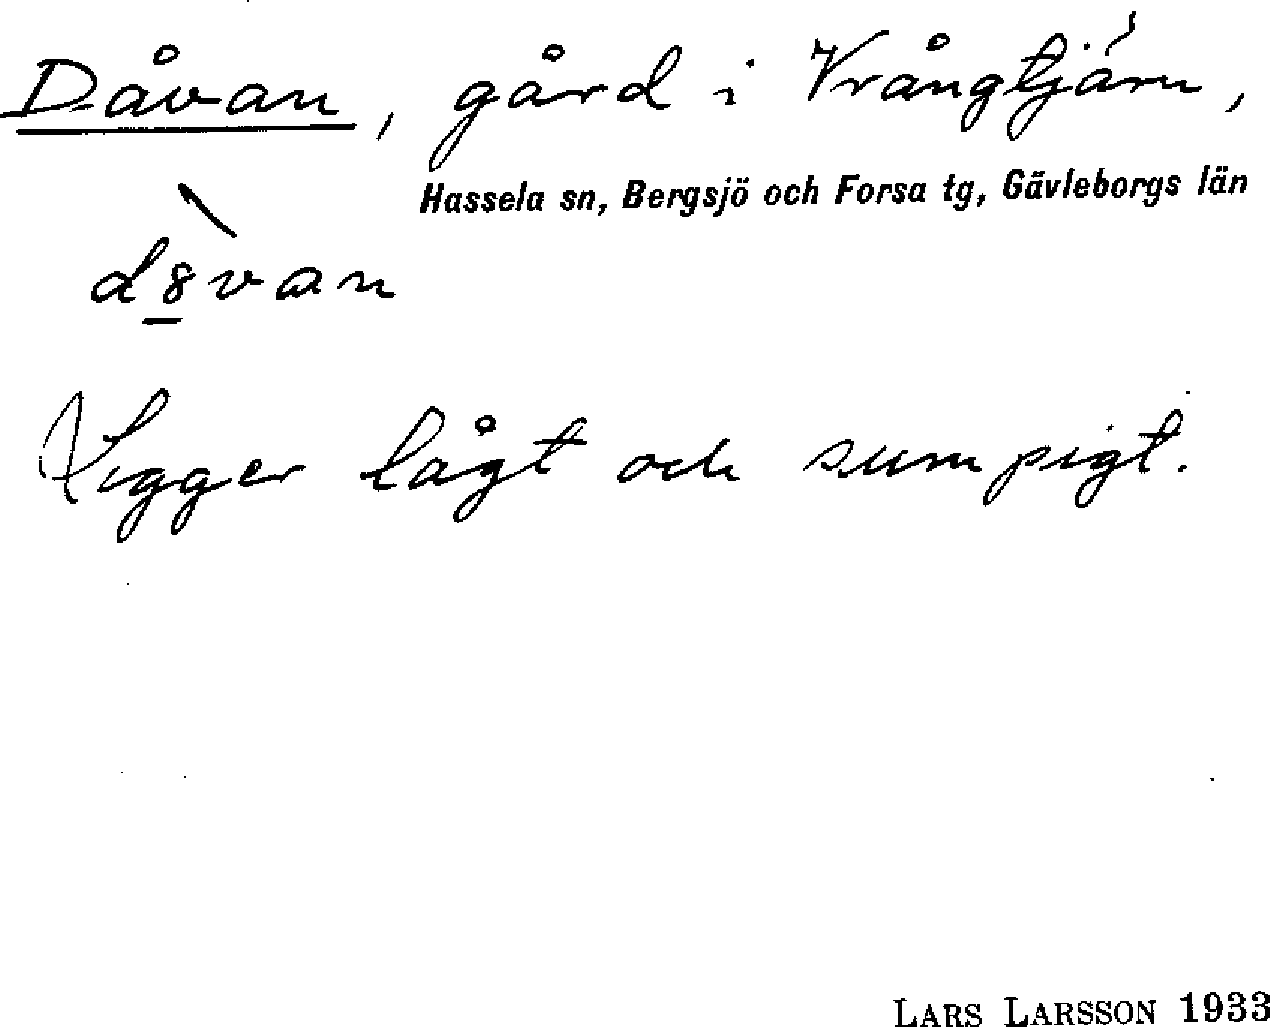 Dåvan, gård i Vrångtjärn,
Hassela sn, Bergsjö och Forsa tg, Gävleborgs län
d8̲̀van
Ligger lågt och sumpigt.
LARS LARSSON 1933